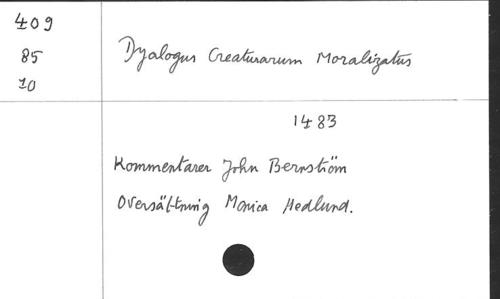 409
85
10
Dyalogus Creaturarum Moralizatus
1483
Kommentarer John Bernström
Översättning Monica Hedlund.